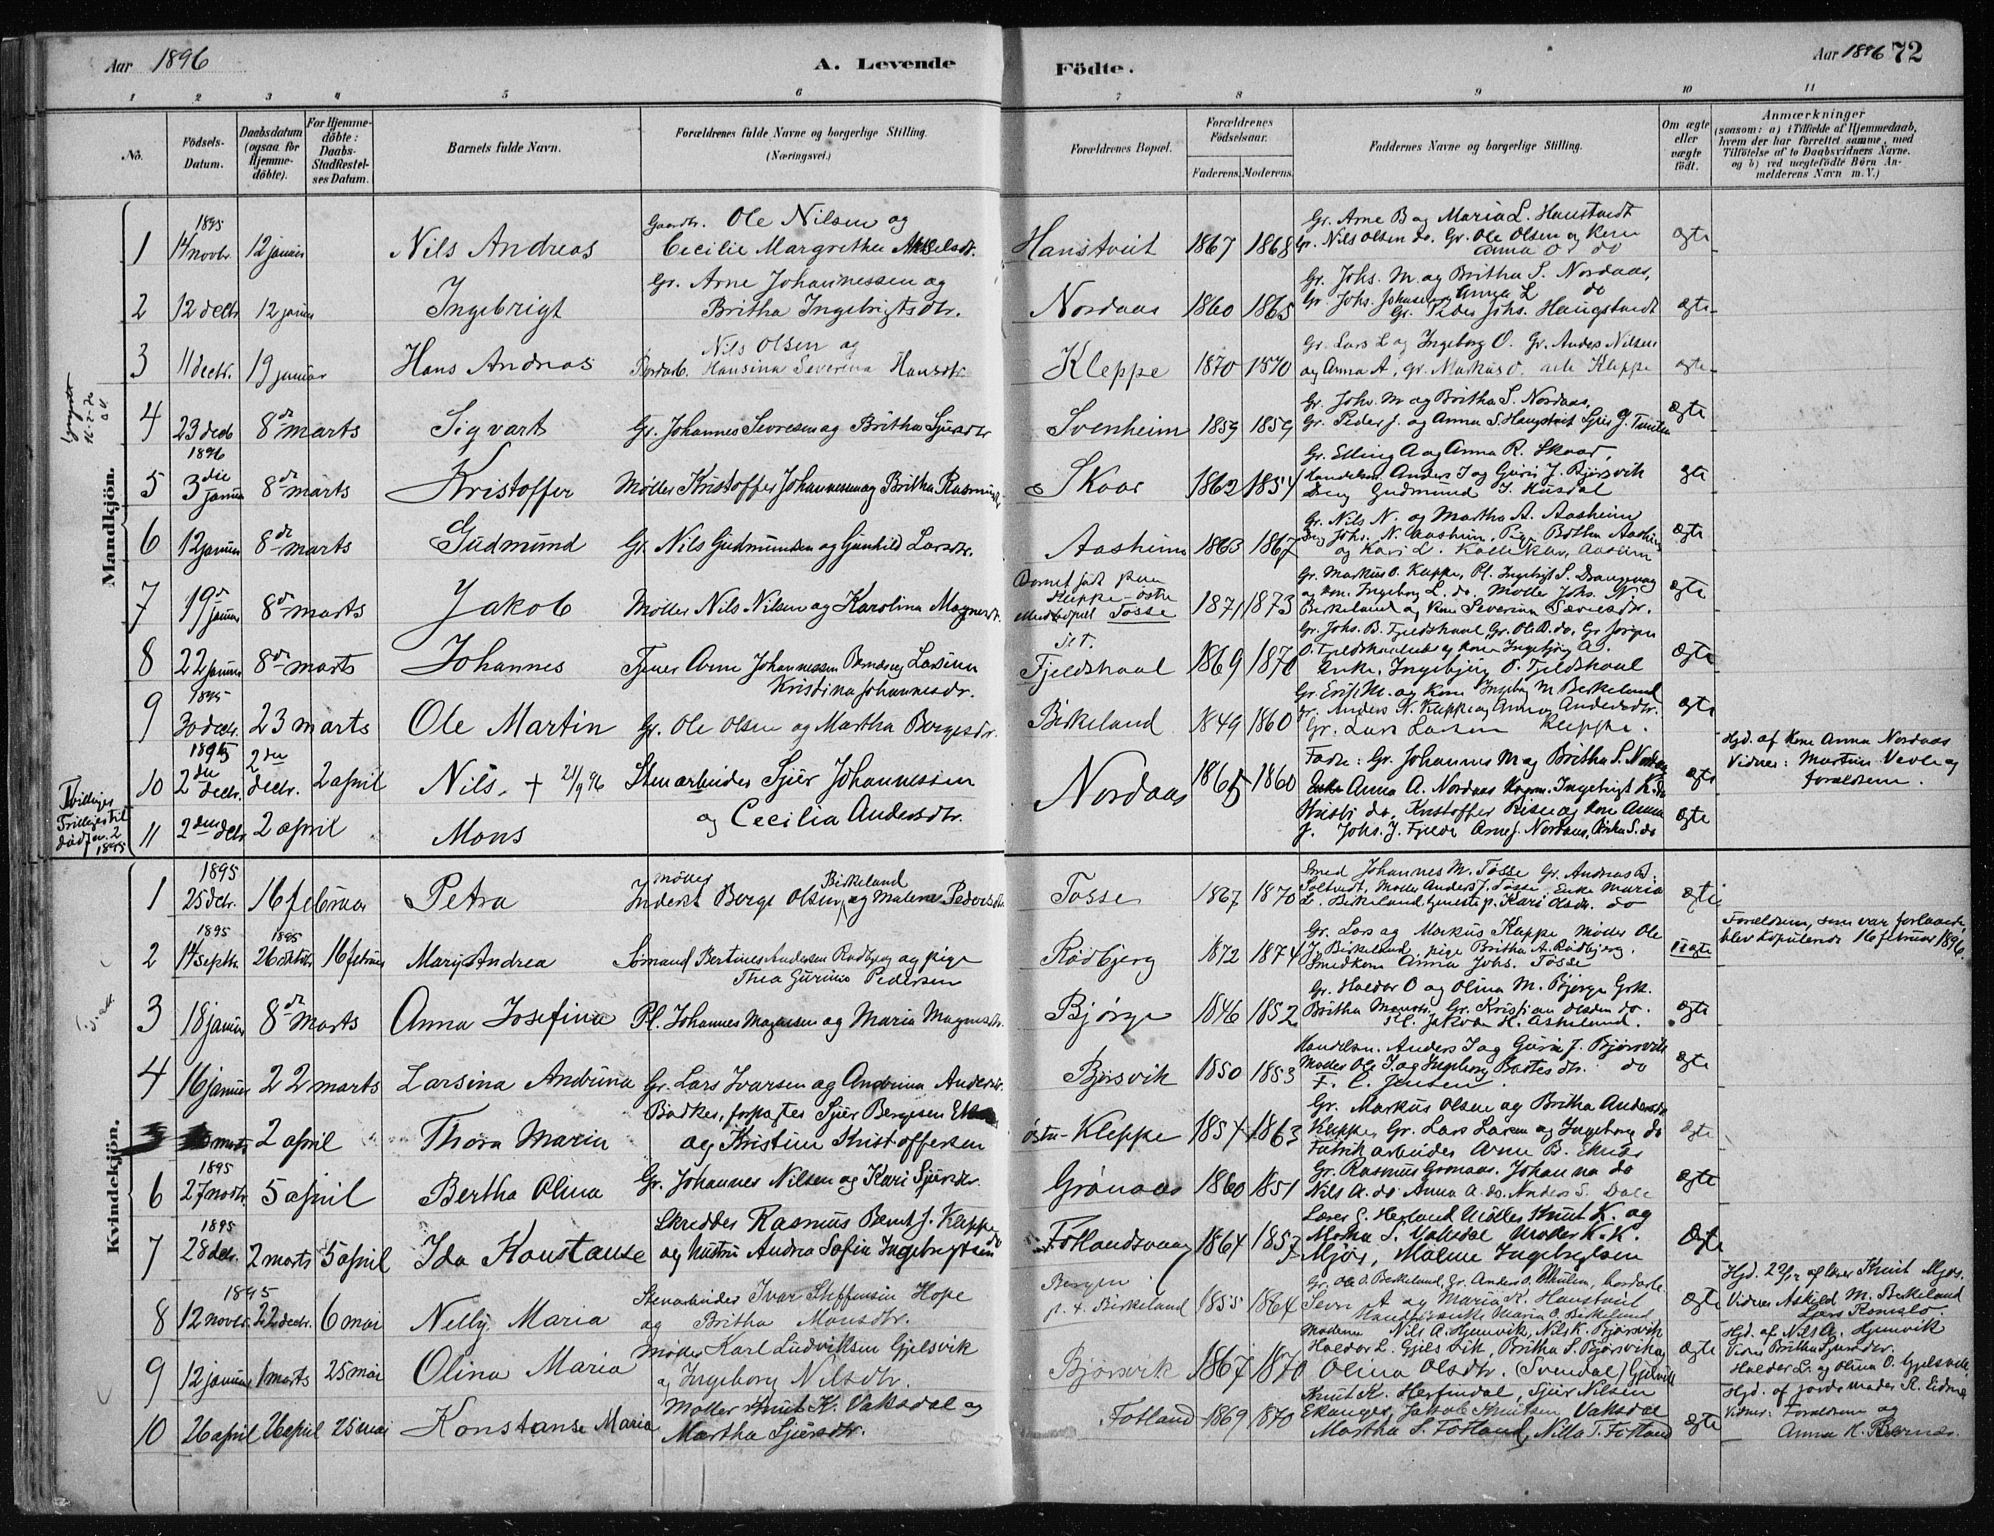 Aar 1896
A. Levende
Födte.
Aar 1896 72
1 2 3 4 5 6 7 8 9 10 11
No.
Födsels-Datum.
Daabsdatum (ogsaa for Hjemme-döbte).
For Hjemme-döbte: Daabs-Stadfæstel-ses Datum.
Barnets fulde Navn.
Forældrenes fulde Navne og borgerlige Stilling. (Næringsvei.)
Forældrenes Bopæl.
Forældrenes Födselsaar.
Faderens. Moderens.
Faddernes Navne og borgerlige Stilling.
Om ægte eller uægte født.
Anmærkninger
(saasom: a) i Tilfælde af Hjemmedaab, hvem der har forrettet samme, med Tilföielse af to Daabsvidners Navne. og b) ved uægtefödte Börn An-melderens Navn m. V.)
Mandkjön.
1 1895 14 novbr. 12 januar Nils Andreas Gaardbr. Ole Nilsen og Cecilie Margrethe Akselsdtr. Hanstveit 1867 1868 Gr. Arne B og Maria L. Hanstvedt Gr. Nils Olsen do. Gr. Ole Olsen og Kone Anna O do ægte
2 12 decbr 12 januar Ingebrigt Gr. Arne Johannessen og Britha Ingebrigtsdtr. Nordaas 1860 1865 Gr. Johs. M. og Britha S. Nordaas, Gr. Johs. Johnsen og Anna L do Gr. Peder Johs. Haugstvedt ægte
3 11 decbr. 19 januar Hans Andreas Nils Olsen og Hansina Severina Hansdtr. Kleppe 1870 1870 Gr. Lars L og Ingeborg O. Gr. Anders Nilsen og Anna A, Gr. Markus O. alle Kleppe ægte
4 23 decb 8de marts Sigvart Gr. Johannes Sivresen og Britha Sjursdtr Svenheim 1859 1859 Gr. Johs. M og Britha S. Nordaas, Gr. Peder J. og Anna S. Haugstvedt Sjur G. ægte
5 1896 3die januar 8de marts Kristoffer Møller Kristoffer Johannessen og Britha Skaar 1862 1857 Gr. Elling A og Anna R. Skaar, Handelsm. Anders I og Guri J. Bjørsvik Dreng Gudmund I. Husdal ægte
6 12 januar 8de marts Gudmund Gr. Nils Gudmundsen og Gunhild Larsdtr. Aasheim 1863 1867 Gr. Nils N. og Martha A. Aasheim Johs. N. Aasheim, Pige Britha Aasheim og Kari L. ægte
7 19de januar 8de marts Jakob Møller Nils Nilsen og Karolina Magnesdtr. Barnet født paa Kleppe-østre Tosse 1871 1873 Gr. Markus O. Kleppe, Pl. Ingebrigt S. og kone Ingeborg L. do. Møller Johs. N Birkeland og kone Severina ægte
8 22 januar 8de marts Johannes Tjener Arne Johannessen Bernæs og Larsina Kristina Johannesdtr. Fjeldskaal 1869 1870 Gr. Johs. B. Fjeldskaal, Gr. Ole B. do, Gr. Jørgen O. Fjeldskaal og kone Ingebjørg A. Enke Ingebjørg O. Fjeldskaal ægte
9 1895 30 decbr. 23 marts Ole Martin Gr. Ole Olsen og Martha Børgesdtr. Birkeland 1849 1860 Gr. Erik M. og Kone Ingeborg M Birkeland Gr. Anders N. Kleppe og Anna Andersdtr. Gr. Lars Larsen Kleppe. ægte
10 1895 2den decbr. 2den decbr. 2 april Nils. + 21/9 96 Stenarbeider Sjur Johannessen og Cecilia Andersdtr. Nordaas 1865 1860 Fadre: Gr. Johannes M og Britha S. Nordaas Enke Anna A. Nordaas Ingebrigt K. ægte Hjd. af kone Anna Nordaas Vidner: Martin Vevle og forældrene.
11 2den decbr 2 april Mons do, Kristoffer og kone Anna J. Johs. J. Fjelde Arne J. Nordaas, Britha S. do ægte
Tvillinger Trillinger til dødf. nr. 2 1895
Kvindekjön.
1 1895 25 decbr. 16 februar Petra Møller Inderst Børge Olsen Birkeland og Malene Pedersdtr Tosse 1867 1870 Smed Johannes M. Tosse Gr. Andreas B. Møller Anders J. Tosse, Enke Maria L. Birkeland tjenestep. Kari Olsdtr. do ægte
2 1895 14 septbr. 1895 26 oktbr. 16 februar Mary Andrea Sømand Bertines Andersen Rødbjerg og pige Thea Gurina Pedersen Rødbjerg 1872 1874 Gr. Lars og Markus Kleppe Møller Ole J. Birkeland, pige Britha A. Rødbjerg. Smedkone Anna Johs. Tosse uægte Forældrene, som var forlovede, blev kopulerede 16 februar 1896.
3 18 januar 8de marts Anna Josefina Pl. Johannes Magnesen og Maria Magnesdtr. Bjørge 1846 1852 Gr. Haldor O og Olina M. Bjørge Grk. Britha Monsdtr. Gr. Kristian Olsen do. Jakob H. Askeland. ægte
4 16 januar 22 marts Larsina Andrina Gr. Lars Ivarsen og Andrina Andersdtr. Bjørsvik 1850 1853 Handelsm. Anders I og Guri J. Bjørsvik Møller Ole J. og Ingeborg Bertesdtr. do F. C. Jensen. ægte
5 marts 2 april Thora Maria Bødker, forpagter Sjur Børgesen og Kristine Kristoffersen østre Kleppe 1857 1863 Gr. Markus Olsen og Britha Andersdtr Kleppe, Gr. Lars Larsen og Ingeborg do Fabrikarbeider Arne B. ægte
6 1895 27 novbr. 5 april Bertha Olina Gr. Johannes Nilsen og Kari Sjursdtr. Grønaas 1860 1851 Gr. Rasmus Grønaas. Johanna do Nils A. do Anna A. do. Anders S. Dale ægte
7 1895 28 decbr. 2 marts 5 april Ida Konstanse Skredder Rasmus Bernt J. Kleppe og hustru Andrea Sofia Ingebrigtsen Fotlandsvaag 1864 1857 Lærer S. Herland Møller Knut K. og Martha S. Møller K. K. Mjøs, Malene Ingebrigtsen Ægte
8 1895 12 novbr. 22 decbr. 6 mai Nelly Maria Stenarbeider Ivar Steffensen Hope og Britha Monsdtr. Bergen p. t. Birkeland 1855 1864 Gr. Ole O. Birkeland, Gr. Anders O. Sevr. A og Maria K. Hanstveit Maria O. Birkeland ægte Hjd. 22/12 af lærer Knut Mjøs. Vidner Askild M. Birkeland Lars Romslo.
9 12 januar 1 marts 25 mai Olina Maria Møller Karl Ludviksen Gjelsvik og Ingeborg Nilsdtr. Bjørsvik 1867 1870 Møllerne Nils A. Hjemvik, Nils K. Bjørsvik Haldor L. Gjelsvik, Britha S. Bjørsvik og Olina Olsdtr. (Svendal) Gjelsvik ægte Hjd. af Nils A. Hjemvik Vidner Britha Sjursdtr. Haldor L. og Olina O. Gjelsvik.
10 26 april 26 april 25 mai Konstanse Maria Møller Knut K. Vaksdal og Martha Sjursdtr. Fotland 1869 1870 Knut K. Herfindal, Sjur Nilsen Ekanger, Jakob Knutsen Vaksdal Martha S. Fotland, Nilla T. Fotland ægte Hjd. af jordemoder R. Eidnes Vidner: Forældrene og Anna K. Bernæs.